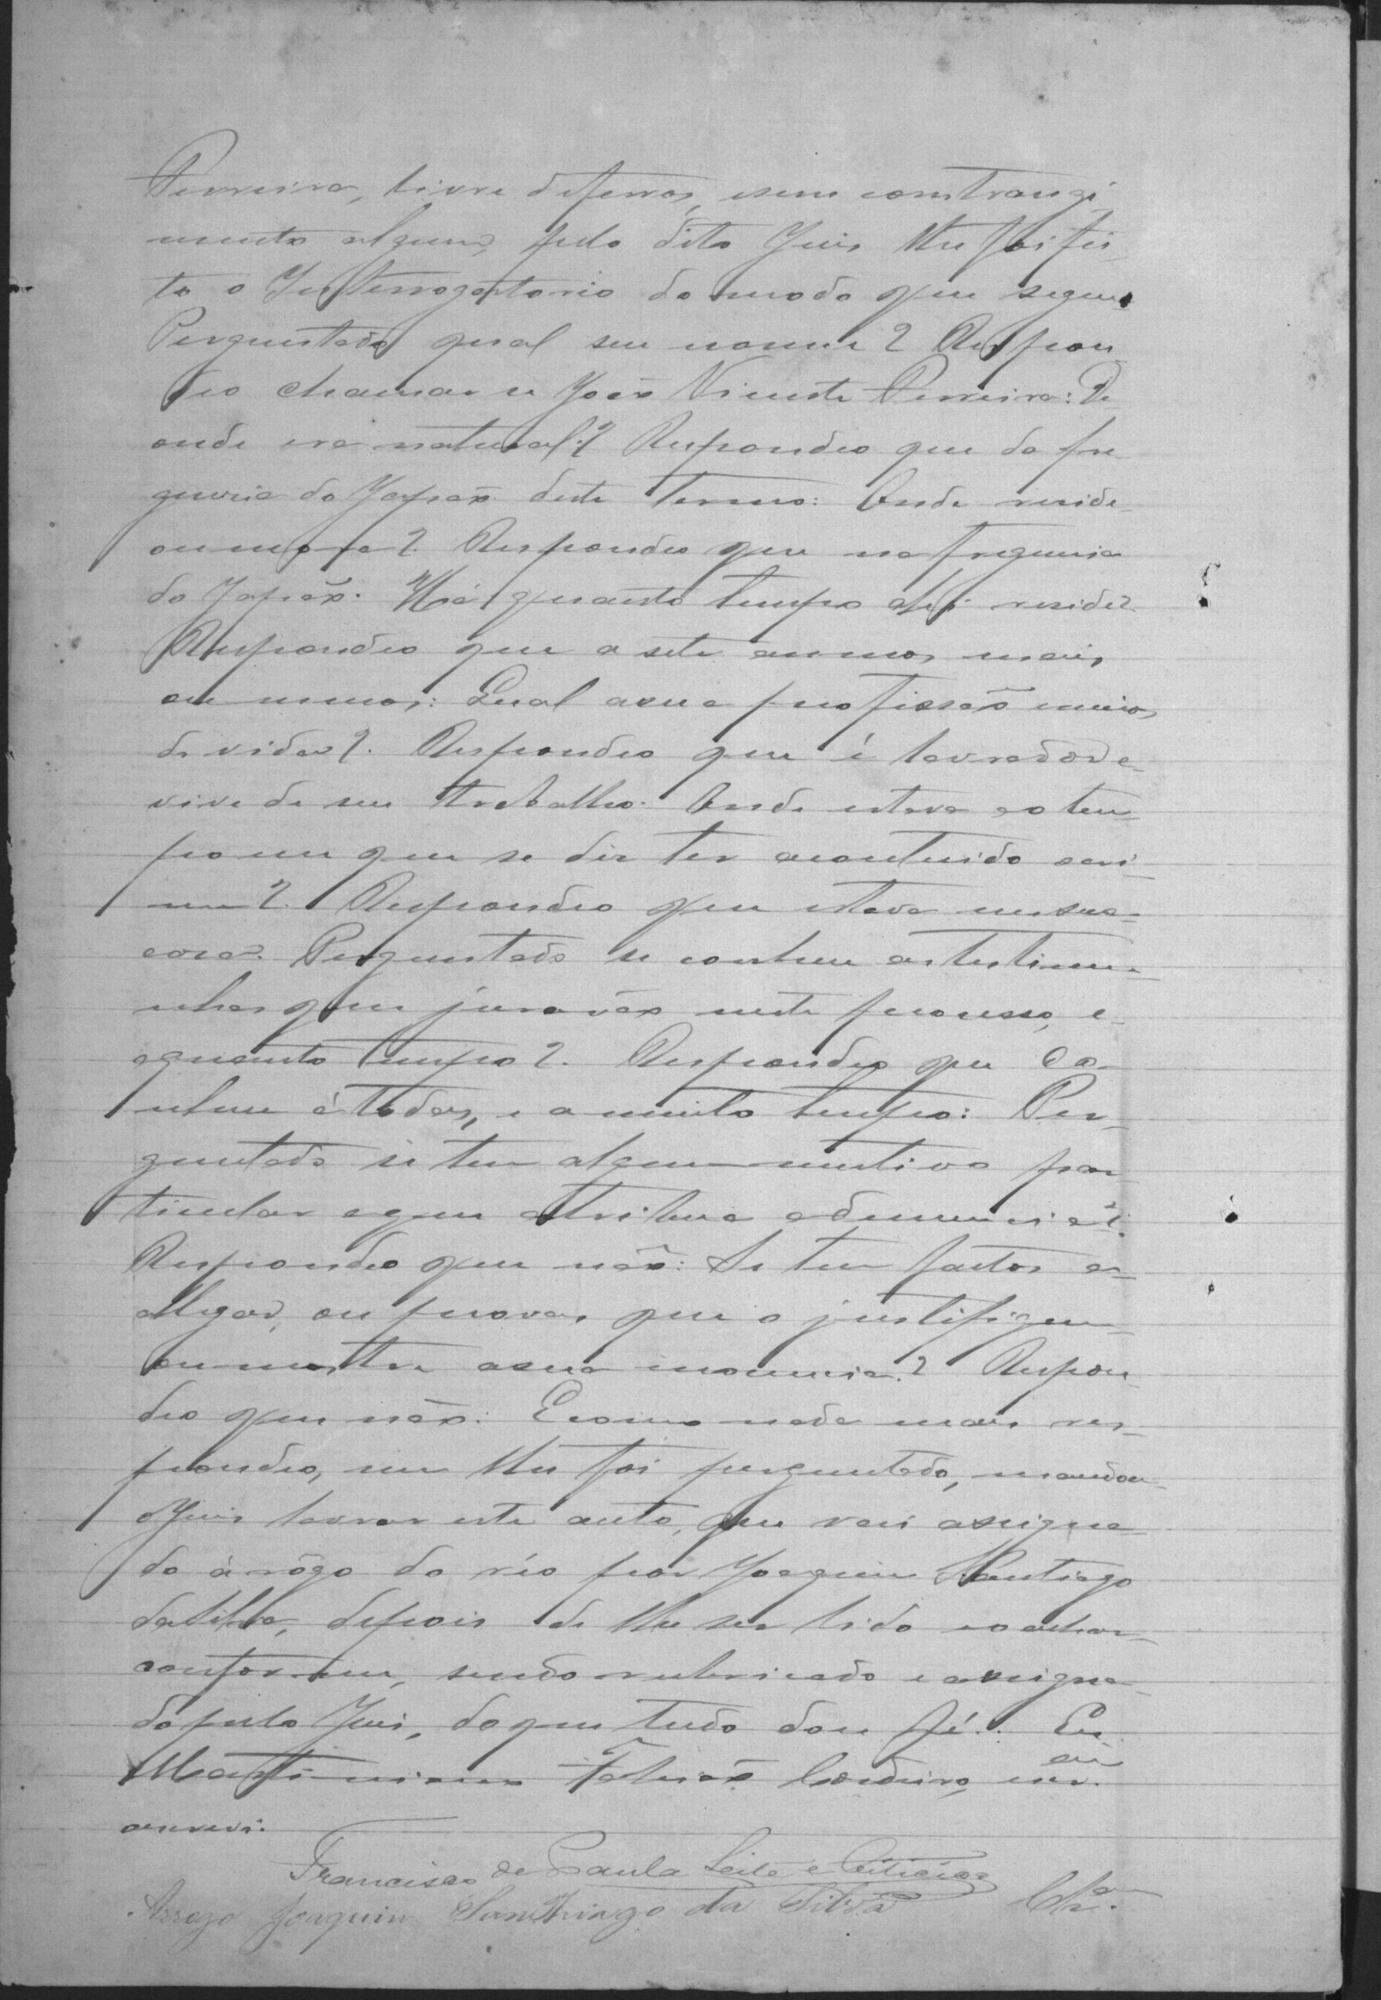 Perreira, livre de ferros, e sem constrangi
mento algum, pelo dito Juis lhe foi fei
to o Interrogatorio do modo que segue
Perguntado qual seu nome? Respon
deo chamar se João Vicente Perreira: De
onde era natural? Respondeo que da fre
guesia do Japão deste Termo: Onde reside
ou mora? Respondeo que na freguesia
do Japão. Ha quanto tempo ahi reside?
Respondeo que a sete annos mais
ou menos: Qual a sua profissão e meios
de vida? Respondeo que é lavrador e
vive de seu trabalho. Onde estava ao tem
po em que se diz ter acontecido o cri
me? Respondeo que estava em sua
casa. Perguntado se conhece as testimu
nhas que juravão neste processo, e
a quanto tempo? Respondeo que Co
nhece á todas, e a muito tempo: Per
guntado se tem algum mutivo par
ticular a que attribua a denuncia?
Respondeo que não: Se tem factos a
allegar, ou provas que o justifiquem
ou mostre a sua inocencia? Respon
deo que não: E como nada mais res
pondeo, nem lhe foi perguntado, mandou
o Juis lavrar este auto, que vai assigna
do á rôgo do réo por Joaquim Santiago
da Silva, depois de lhe ser lido e o achar
conforme, sendo rubricado e assigna
do pelo Juis, do que tudo dou fé. Eu
Martiniano Cordeiro, escrivão
o escrevi.
Francisco de Paula Leite e
Arrogo Joaquim Santhiago da Silva